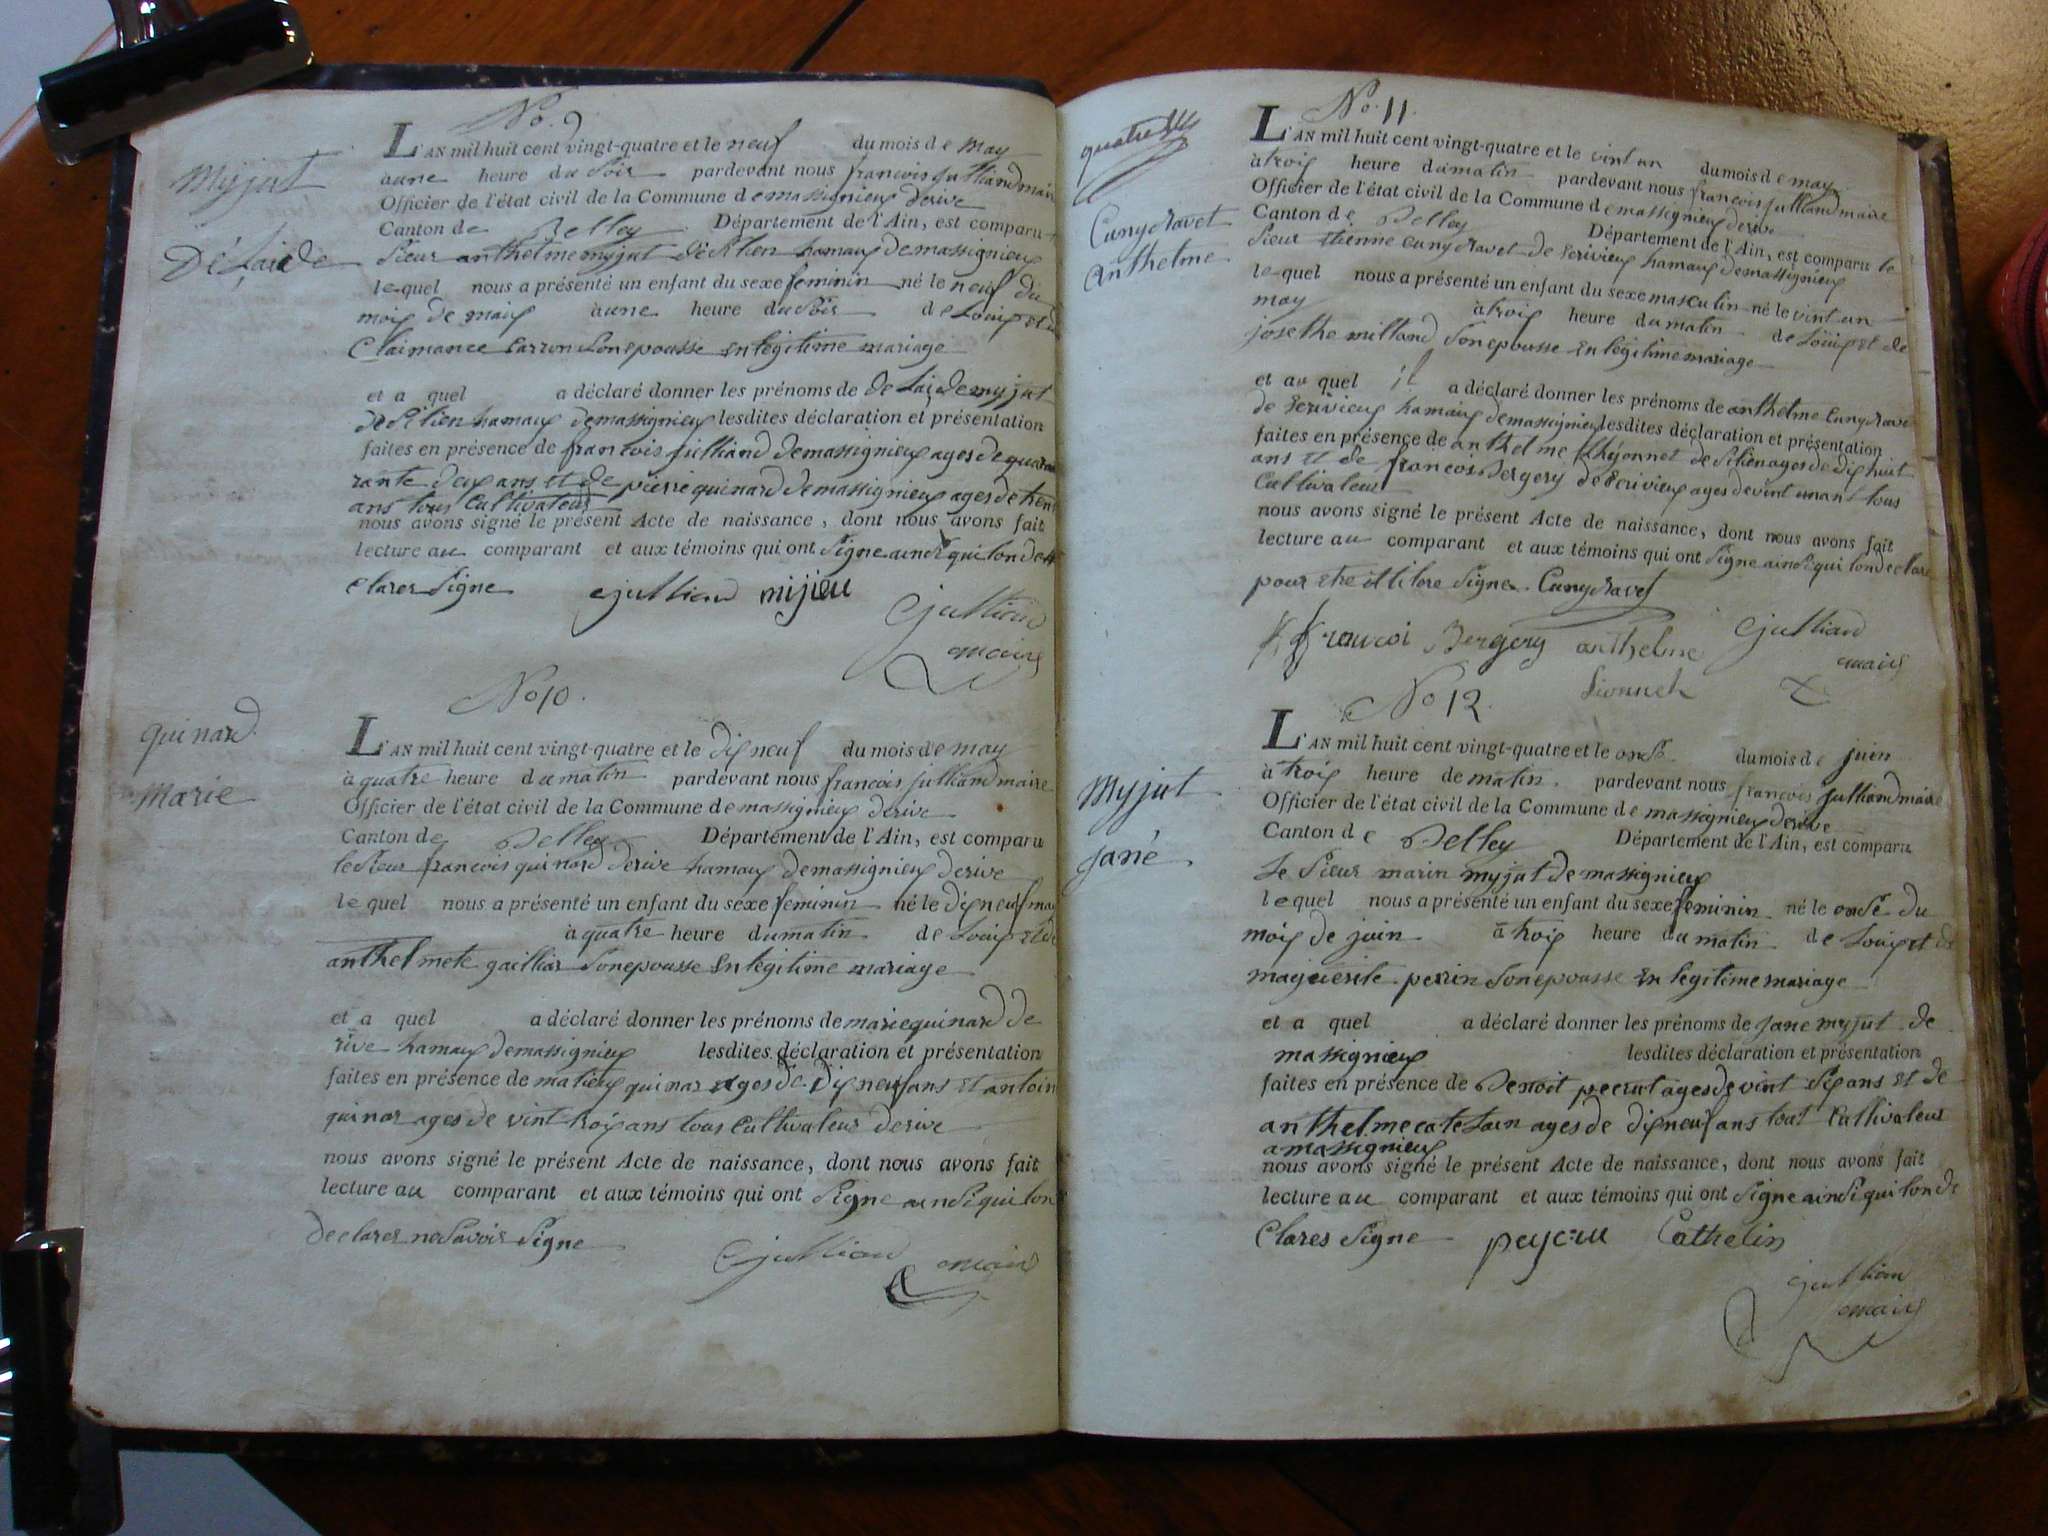 No. 9
Myjut
Délaide
L'AN mil huit cent vingt-quatre et le neuf du mois de may
à une heure du Soir pardevant nous francois julliand maire
Officier de l'état civil de la Commune de massignieux derive
Canton de Belley Département de l'Ain, est comparu
Sieur anthelme myjut de Silien hamaux de massignieux
lequel nous a présenté un enfant du sexe feminin né le neuf du
mois de maix à une heure du Soir de Louip et de
Claimance Carron Son epousse En legitime mariage
et a quel a déclaré donner les prénoms de delaide myjut
de Silien hamaux demassignieux lesdites déclaration et présentation
faites en présence de francois julliand demassignieux ages de quara
rante deux ans et de pierre quinard demassignieux ages de trent
ans tous Cultivateur
nous avons signé le présent Acte de naissance, dont nous avons fait
lecture au comparant et aux témoins qui ont Signe ainsi qui lon de
clarer Signe julliand mijeu
julliand
maire
No 10.
quinard
Marie
L'AN mil huit cent vingt-quatre et le dix neuf du mois de may
à quatre heure du matin pardevant nous francois julliand maire
Officier de l'état civil de la Commune de massignieux derive
Canton de Belley Département de l'Ain, est comparu
le Sieur francois quinard derive hamaux demassignieux derive
lequel nous a présenté un enfant du sexe feminin né le dix neuf mai
à quatre heure du matin de Louip et de
anthelmete gailliar Son epousse En legitime mariage
et a quel a déclaré donner les prénoms de marie quinard de
rive hamaux demassignieux lesdites déclaration et présentation
faites en présence de matieux quinar ages de dix neuf ans et antoin
quinar ages de vint troix ans tous Cultivateur derive
nous avons signé le présent Acte de naissance, dont nous avons fait
lecture au comparant et aux témoins qui ont Signe ainsi qui lon
declarer ne Savoir Signe
julliand maire
No. 11.
Cunyravet
anthelme
L'AN mil huit cent vingt-quatre et le vint un du mois de may
à troix heure du matin pardevant nous francois julliand maire
Officier de l'état civil de la Commune de massignieux derive
Canton de Belley Département de l'Ain, est comparu le
Sieur Etienne Cunydravet de Ecrivieux hamaux demassignieux
lequel nous a présenté un enfant du sexe masculin né le vint un
may à troix heure du matin de Louip et de
josethe milland Son epousse En legitime mariage
et au quel il a déclaré donner les prénoms de anthelme Cunydrave
de Ecrivieux hamaux demassignieux lesdites déclaration et présentation
faites en présence de anthelme lhéjonnet de Silien ages de dix huit
ans et de francois Bergery de Ecrivieux ages de vint un ans tous
Cultivateur
nous avons signé le présent Acte de naissance, dont nous avons fait
lecture au comparant et aux témoins qui ont Signe ainsi qui lon declare
pour Signe. Cunydravet
francoi Bergery anthelme julliand
maire
Lionnet
No 12
Myjut
jane
L'AN mil huit cent vingt-quatre et le onse du mois de juin
à troix heure de matin pardevant nous francois julliand maire
Officier de l'état civil de la Commune de massignieux derive
Canton de Belley Département de l'Ain, est comparu
Le Sieur marin myjut de massignieux
lequel nous a présenté un enfant du sexe feminin né le onse du
moix de juin à troix heure du matin de Louip et de
maguerite perrin Son epousse En legitime mariage
et a quel a déclaré donner les prénoms de jane myjut de
massignieux lesdites déclaration et présentation
faites en présence de Benoit pecrut ages de vint Six ans et de
anthelme ages de dix neuf ans tout Cultivateur
a massignieux
nous avons signé le présent Acte de naissance, dont nous avons fait
lecture au comparant et aux témoins qui ont Signe ainsi qui lon de
Clarer Signe Cathelin
julliand
maire